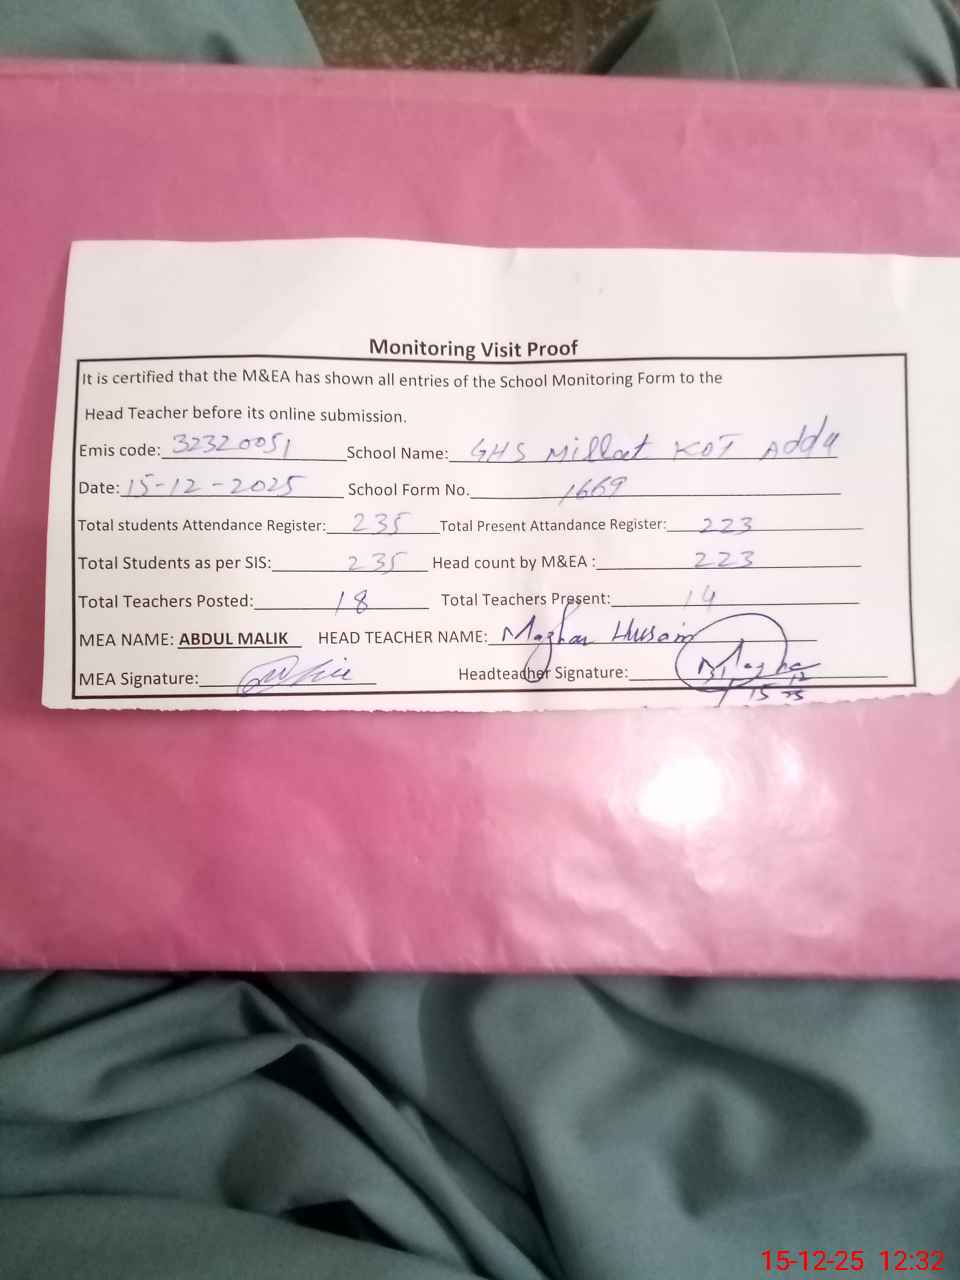 Monitoring Visit Proof
It is certified that the M&EA has shown all entries of the School Monitoring Form to the
Head Teacher before its online submission.
Emis code: 32320051 School Name: GHS Millat KOT Adda
Date: 15-12-2025 School Form No. 1669
Total students Attendance Register: 235 Total Present Attandance Register: 223
Total Students as per SIS: 235 Head count by M&EA : 223
Total Teachers Posted: 18 Total Teachers Present: 14
MEA NAME: ABDUL MALIK HEAD TEACHER NAME: Mazhar Husain
MEA Signature: Headteacher Signature: Mazhar
15 12 25
15-12-25 12:32